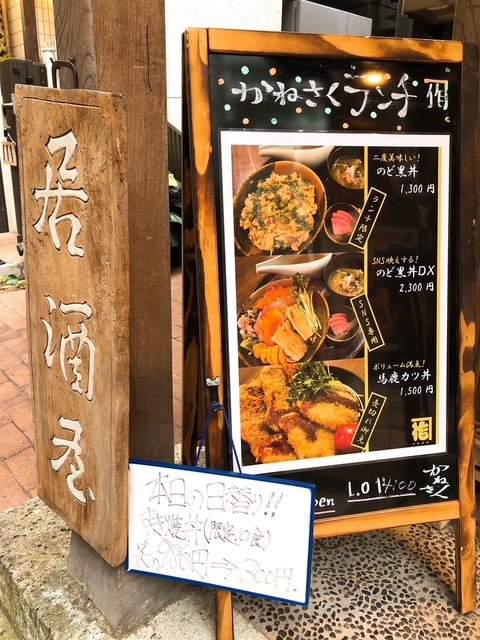 居酒屋
かねさくランチ 作
二度美味しい!
のど黒丼
1,300 円
ランチ限定
SNS映えする!
のど黒丼DX
2,300 円
SNS専用
ボリューム満点!
馬鹿カツ丼
1,500 円
売切れ御免
L.O 14:00
かねさく
本日の日替り!!
すき焼丼(限定10食)
980円⇒300円